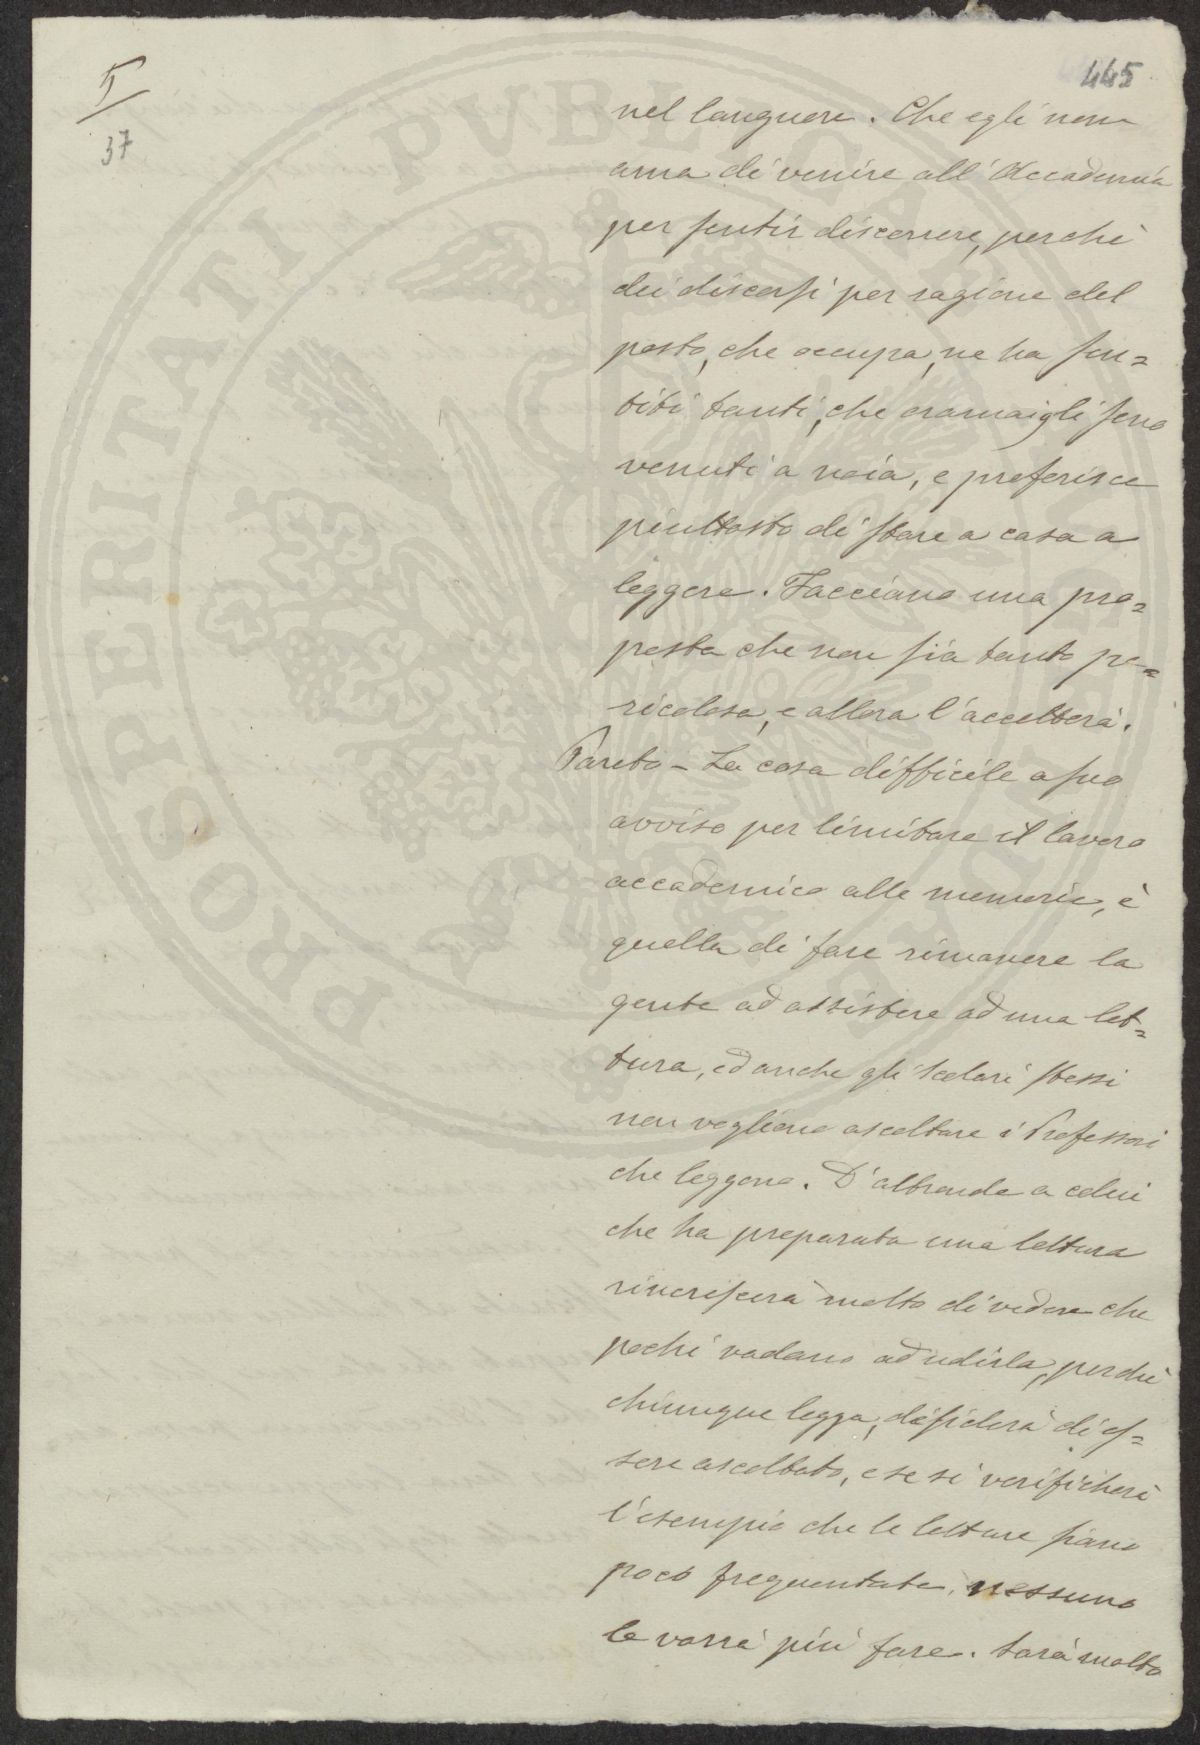 5
37
445
nel languore. Che egli non
ama di venire all'Accademia
per sentir discorrere, perchè
dei discorsi per ragione del
posto, che occupa, ne ha sen=
titi tanti, che oramai gli sono
venuti a noia, e preferisce
piuttosto di stare a casa a
leggere. Facciano una pro=
posta che non sia tanto pe=
ricolosa, e allora l'accetterà.
Pareto – La cosa difficile a suo
avviso per limitare il lavoro
accademico alle memorie, è
quella di fare rimanere la
gente ad assistere ad una let=
tura, ed anche gli scolari stessi
non vogliono ascoltare i Professori
che leggono. D'altronde a colui
che ha preparata una lettura
rincrescerà molto di vedere che
pochi vadano ad udirla, perchè
chiunque legga, desidera di es=
sere ascoltato, e se si verificherà
l'esempio che le letture siano
poco frequentate, nessuno
le vorrà più fare. Sarà molto
PROSPERITATI PUBLICAE AUGENDAE